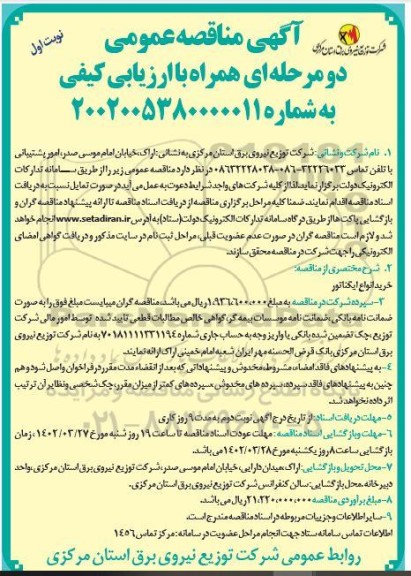 شرکت توزیع نیروی برق استان مرکزی
نوبت اول
آگهی مناقصه عمومی
دو مرحله ای همراه با ارزیابی کیفی
به شماره ۲۰۰۲۰۰۵۳۸۰۰۰۰۰۱۱
۱. نام شرکت و نشانی: شرکت توزیع نیروی برق استان مرکزی به نشانی: اراک، خیابان امام موسی صدر، امور پشتیبانی
با تلفن تماس ۳۲۲۲۶۰۲۳-۰۸۶ ۰۸۶۳۲۲۲۸۰۲۸ در نظر دارد مناقصه عمومی زیر را از طریق سامانه تدارکات
الکترونیک دولت برگزار نماید. لذا از کلیه شرکت های واجد شرایط دعوت به عمل می آید در صورت تمایل نسبت به دریافت
اسناد مناقصه اقدام نمایند. ضمنا کلیه مراحل برگزاری مناقصه از دریافت اسناد مناقصه تا ارائه پیشنهاد مناقصه گران و
بازگشایی پاکت ها از طریق درگاه سامانه تدارکات الکترونیک دولت (ستاد) به آدرس www.setadiran.ir انجام خواهد
شد و لازم است مناقصه گران در صورت عدم عضویت قبلی، مراحل ثبت نام در سایت مذکور و دریافت گواهی امضای
الکترونیکی را جهت شرکت در مناقصه محقق سازند.
۲. شرح مختصری از مناقصه:
خرید انواع ایکناتور
۳-سپرده شرکت در مناقصه به مبلغ ۱،۹۳۶،۶۰۰،۰۰۰ ریال می باشد، مناقصه گران میبایست مبلغ فوق را به صورت
ضمانت نامه بانکی، ضمانت نامه موسسات بیمه گر، گواهی خالص مطالبات قطعی تایید شده توسط امور مالی شرکت
توزیع، چک تضمین شده بانکی یا واریز وجه به حساب جاری شماره ۷۰۱۸۱۱۱۱۳۳۱۱۹۴ به نام شرکت توزیع نیروی
برق استان مرکزی بانک قرض الحسنه مهر ایران شعبه امام خمینی اراک ارائه نمایند.
۴- به پیشنهادهای فاقد امضاء، مشروط، مخدوش و پیشنهاداتی که بعد از انقضاء مدت مقرر در فراخوان واصل شود و هم
چنین به پیشنهادهای فاقد سپرده، سپرده های مخدوش، سپرده های کمتر از میزان مقرر، چک شخصی و نظایر آن ترتیب
اثر داده نخواهد شد.
۵-مهلت دریافت اسناد: از تاریخ درج آگهی نوبت دوم به مدت ۹ روز کاری
۶-مهلت و بازگشایی اسناد مناقصه: مهلت عودت اسناد مناقصه تا ساعت ۱۹ روز شنبه مورخ ۱۴۰۲/۰۳/۲۷ ، زمان
بازگشایی ساعت ۸ روز یکشنبه مورخ ۱۴۰۲/۰۳/۲۸ می باشد.
۷-محل تحویل و بازگشایی: اراک، میدان دارایی، خیابان امام موسی صدر، شرکت توزیع نیروی برق استان مرکزی، واحد
دبیرخانه، محل بازگشایی: سالن کنفرانس شرکت توزیع نیروی برق استان مرکزی.
۸-مبلغ برآوردی مناقصه ۲۱،۲۲۰،۰۰۰،۰۰۰ ریال می باشد.
۹-سایر اطلاعات و جزییات مربوطه در اسناد مناقصه مندرج است.
اطلاعات تماس سامانه ستاد جهت انجام مراحل عضویت در سامانه: مرکز تماس ۱۴۵۶
روابط عمومی شرکت توزیع نیروی برق استان مرکزی